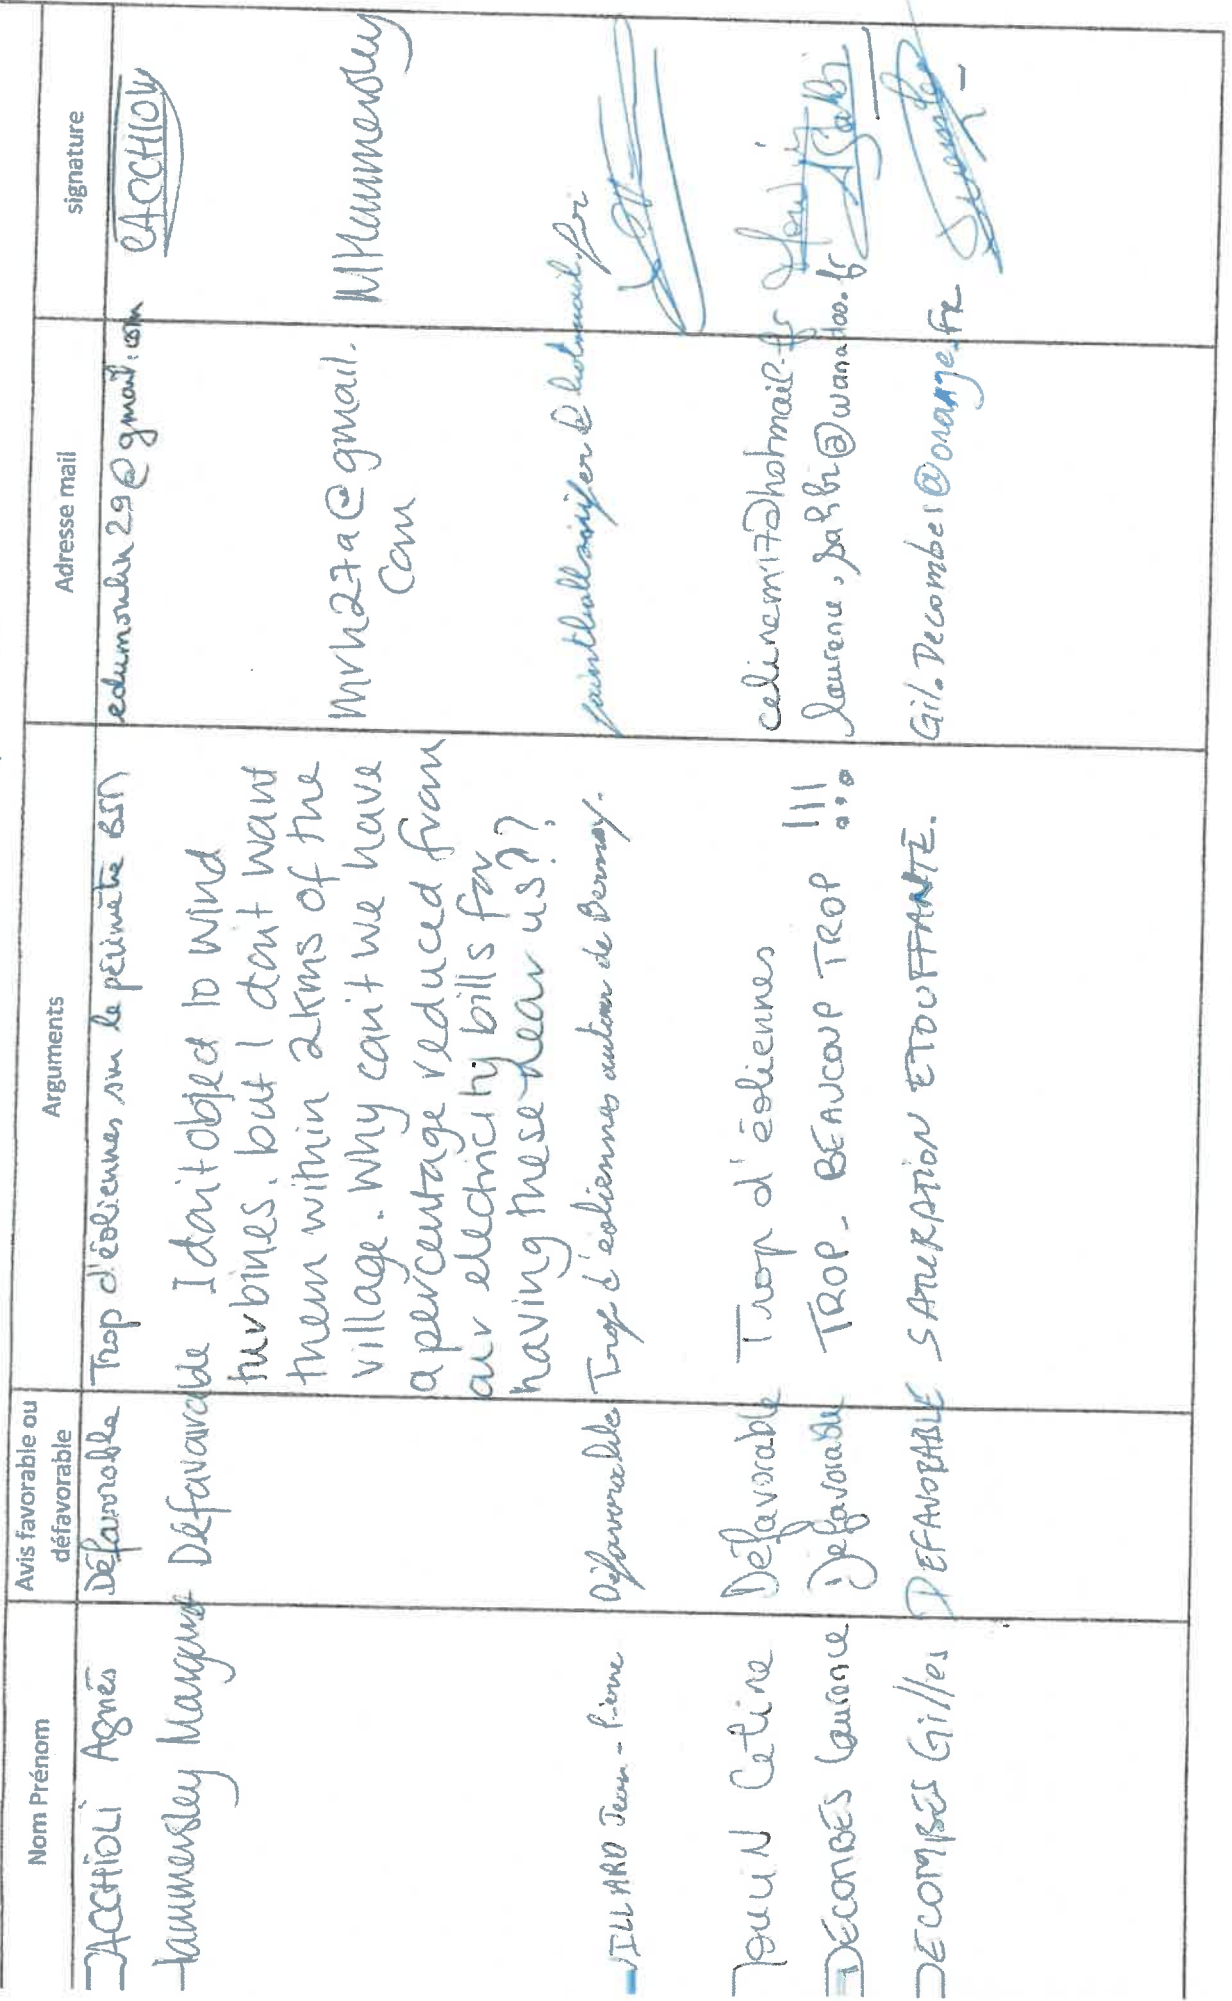 Nom Prénom
Avis favorable ou
défavorable
Arguments
Adresse mail
signature
Agnès
Défavorable
Trop d'éoliennes sur le périmètre BSN
edumoulin29@gmail.com
CACCHIOLI
Hammersley Margaret
Défavorable
I don't object to wind
turbines. but I dont want
them within 2kms of the
village. Why can't we have
a percentage reduced from
our electricity bills for
having these near us???
mrh27a@gmail.
com
MHammersley
VILLARD Jean-Pierre
Défavorable
Trop d'eoliennes autour de Bernay.
hotmail.fr
Céline
Défavorable
Trop d'éoliennes
celinemi17@hotmail.fr
DÉCOMBES Laurence
Défavorable
TROP_ BEAUCOUP TROP !!!
laurence.sahbi@wanadoo.fr
DECOMBES Gilles
DEFAVORABLE
SATURATION ETOUFFANTE.
Gil.Decombes@orange.FR